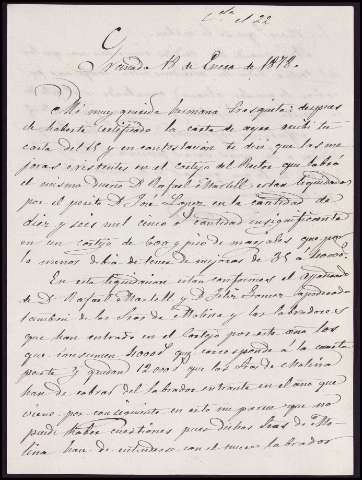 el 22
Granada 18 de Enero de 1878.
Mi muy querida hermana Frasquita: despues
de haberte certificado la carta de ayer recibi tu
carta del 15 y en contestacion te diré que las me
joras existentes en el Cortijo del Rector que labra
el mismo dueño D. Rafael Martell estan liquidadas
por el perito D. José Lopez en la cantidad de
diez y seis mil cinco cantidad insignificante
en un cortijo de 600 y pico de marjales que por
lo menos debia de tener de mejoras de 35 a
En esta liquidacion estan conformes el apoderado
de D. Rafael Martell y D. Felix Gomez apoderado
tambien de las Sras de Molina y los labradores
que han entrado en el Cortijo por este año los
que consumen 4000 que corresponde a la cuarta
parte y quedan 12.000 que las Sras de Molina
han de cobrar del labrador entrante en el año que
viene por consiguiente en esto me parece que no
puede haber cuestiones pues dichas Sras de Mo-
lina han de entenderse con el nuevo labrador